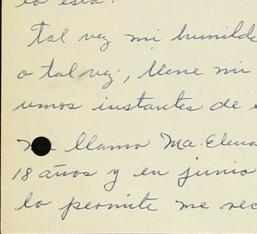 lo está!
Tal vez mi humilde
o tal vez, llene mi
unos instantes de
llamo Ma. Elena
18 años y en junio
lo permite me rec